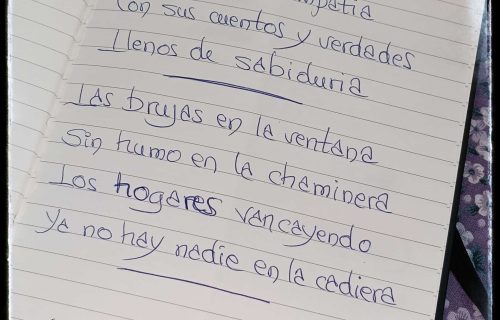 con sus cuentos y verdades
llenos de sabiduria
Las brujas en la ventana
Sin humo en la cheminera
Los hogares van cayendo
ya no hay nadie en la cadiera